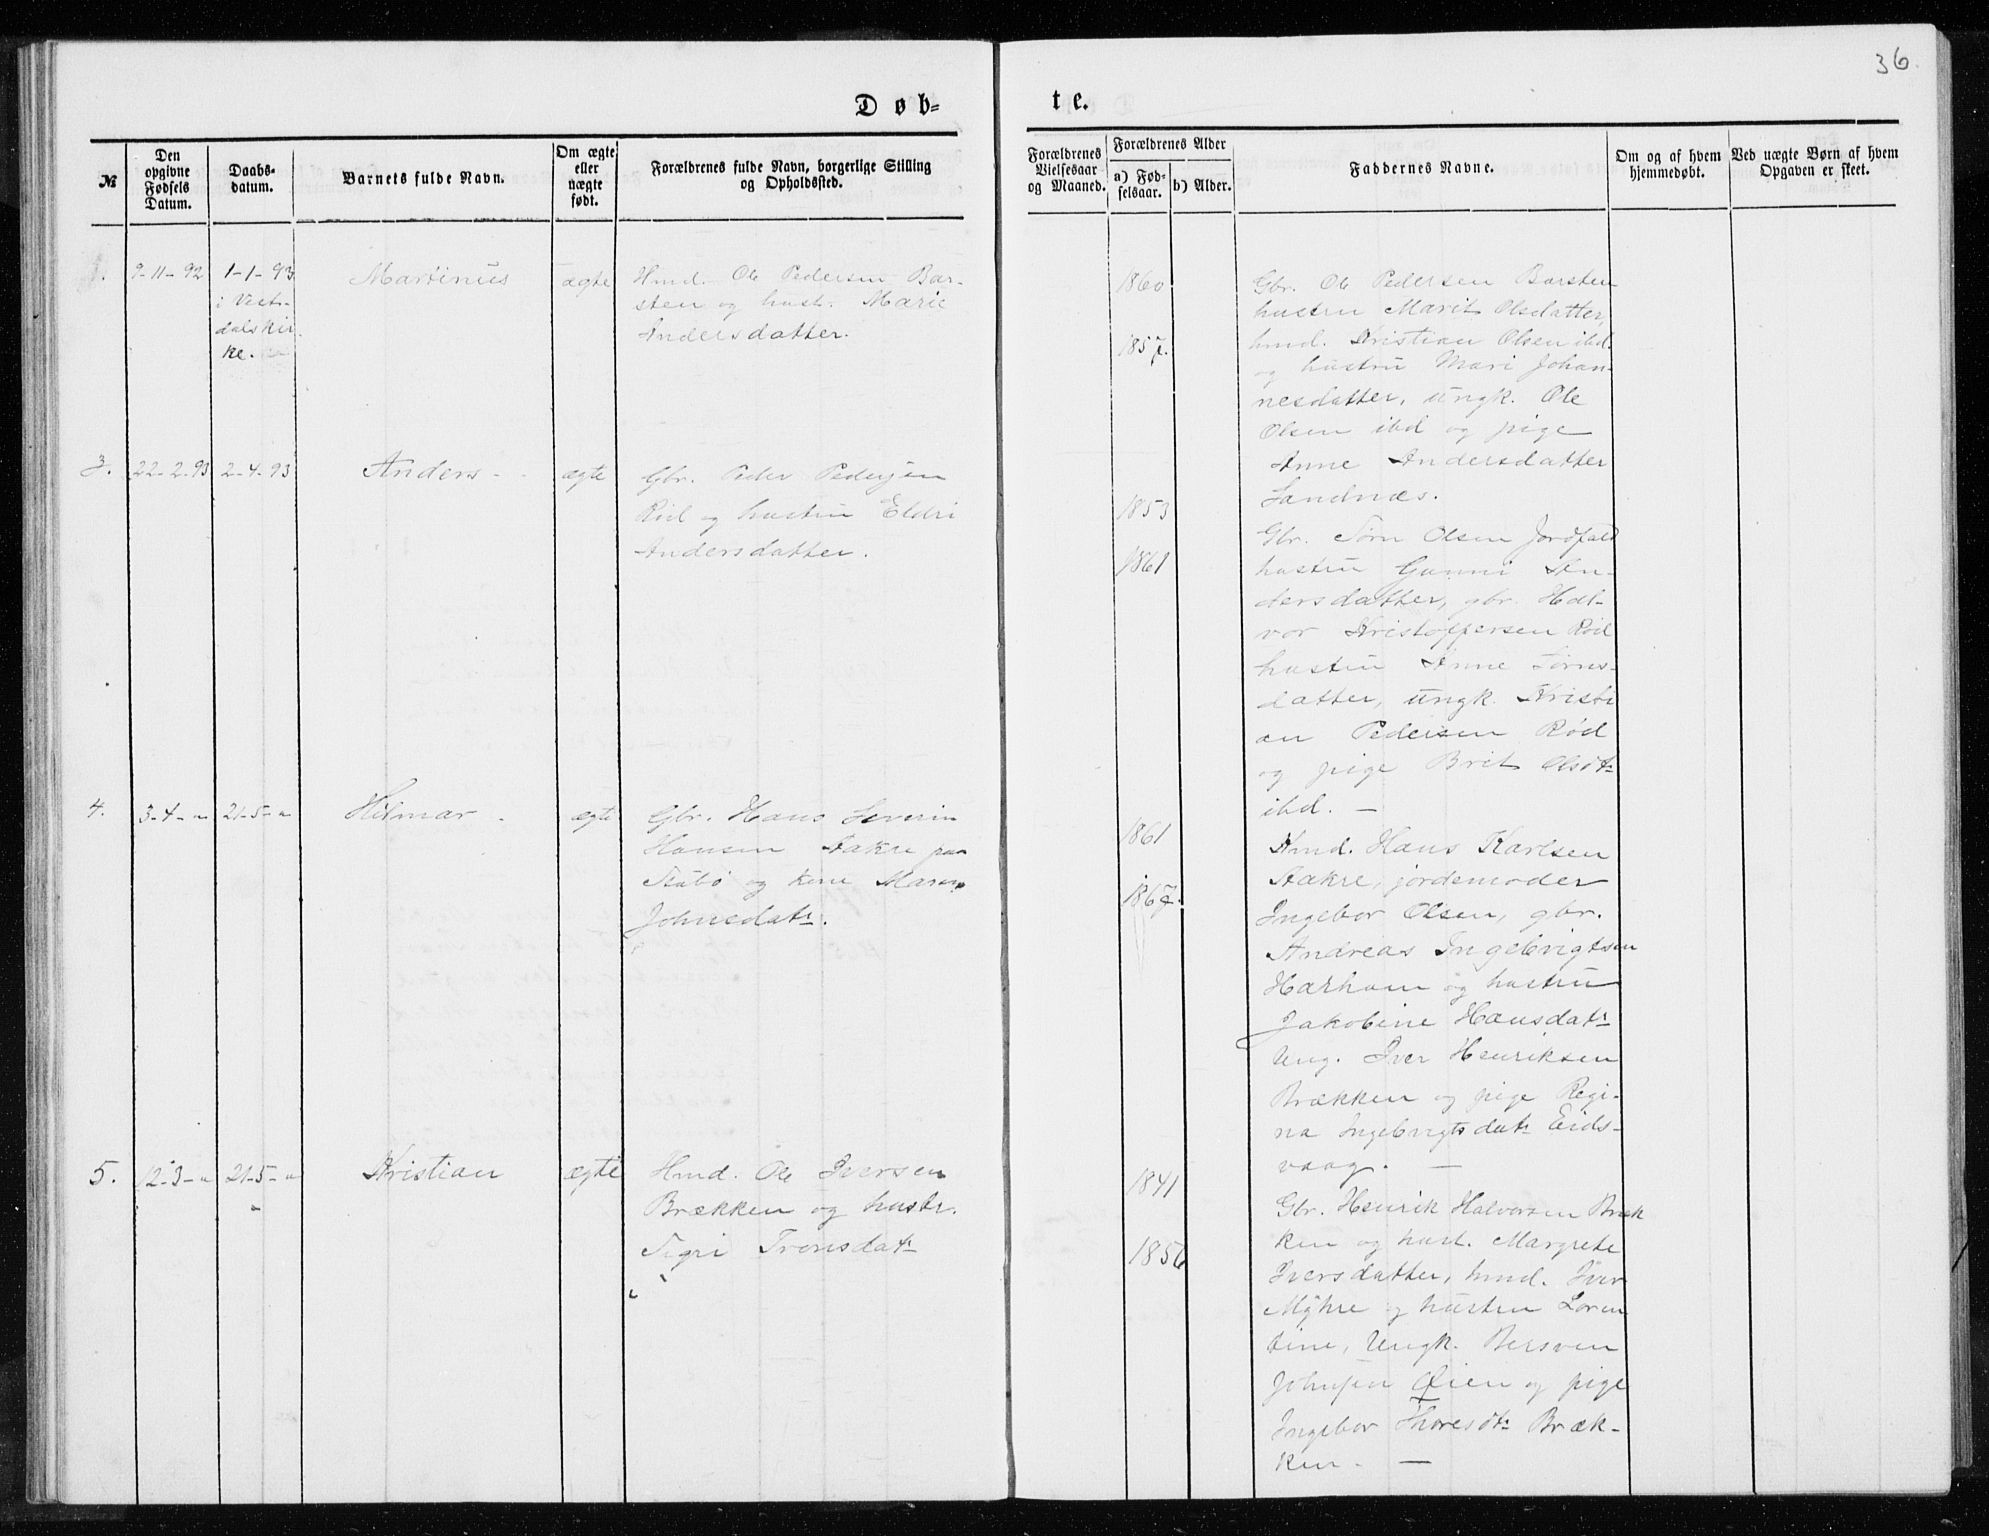 36.
Døb-
te.
№
Den opgivne Fødsels Datum.
Daabs-datum.
Barnets fulde Navn.
Om ægte eller uægte født.
Forældrenes fulde Navn, borgerlige Stilling og Opholdssted.
Forældrenes Vielsesaar og Maaned.
Forældrenes Alder
a) Fød-selsaar.
b) Alder.
Faddernes Navne.
Om og af hvem hjemmedøbt.
Ved uægte Børn af hvem Opgaven er skeet.
1.
9-11-92
1-1-93
i Vest-
dals kir-
ke.
Martinus
ægte
Hmd. Ole Pedersen Bar-
sten og hust. Marie
Andersdatter.
1860
1857.
Gbr. Ole Pedersen Barsten
hustru Marit Olsdatter,
hmd. Kristian Olsen ibd.
og hustru Mari Johan-
nesdatter, ungk. Ole
Olsen ibd og pige
Anne Andersdatter
Sandnæs.
3.
22-2-93
2-4-93
Anders
ægte
Gbr. Peder Pedersen
Rød og hustru Eldri
Andersdatter.
1853
1861
Gbr. Sørn Olsen Jordfald
hustru Gunni An-
dersdatter, gbr. Hal-
vor Kristoffersen Rød
hustru Anne Sørns-
datter, ungk. Kristi
an Pedersen Rød
og pige Brit Olsdt.
ibd. —
4.
3-4-"
21-5-"
Hilmar
ægte
Gbr. Hans Severin
Hansen Aakre paa
Stubø og kone Maren
Johnsdatr.
1861
1867.
Hmd. Hans Karlsen
Aakre, jordemoder
Ingebor Olsen, gbr.
Andreas Ingebrigtsen
Harham og hustru
Jakobine Hansdatr
Ung. Iver Henriksen
Brækken og pige Regi-
na Ingebrigtsdatr Eids-
vaag. —
5.
12-3-"
21-5-"
Kristian
ægte
Hmd. Ole Iversen
Brækken og hustr.
Sigri Tronsdatr
1841
1856
Gbr. Henrik Halvorsen Bræk
ken og hust. Margrete
Iversdatter, hmd. Iver
Myhre og hustru Loren
tine, Ungk. Bersven
Johnsen Øien og pige
Ingebor Thoresdtr Bræk-
ken. —